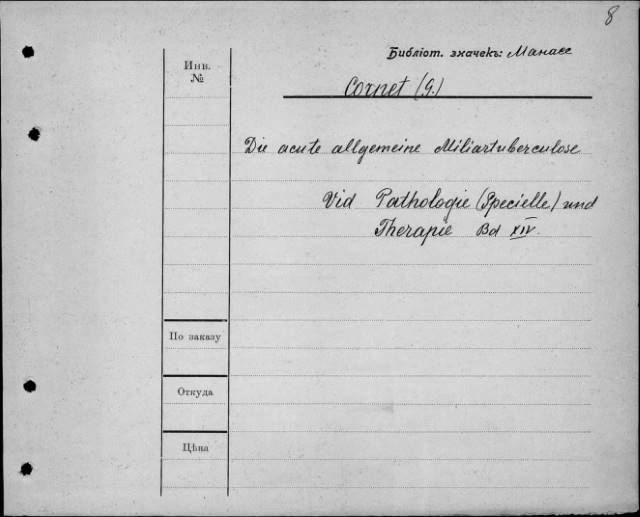 8
Библіот. значекъ: Манасе
Инв. №
Cornet (G.)
Die acute allgemeine Miliartuberculose
Vid Pathologie (Specielle) und
Therapie Bd XIV.
По заказу
Откуда
Цѣна